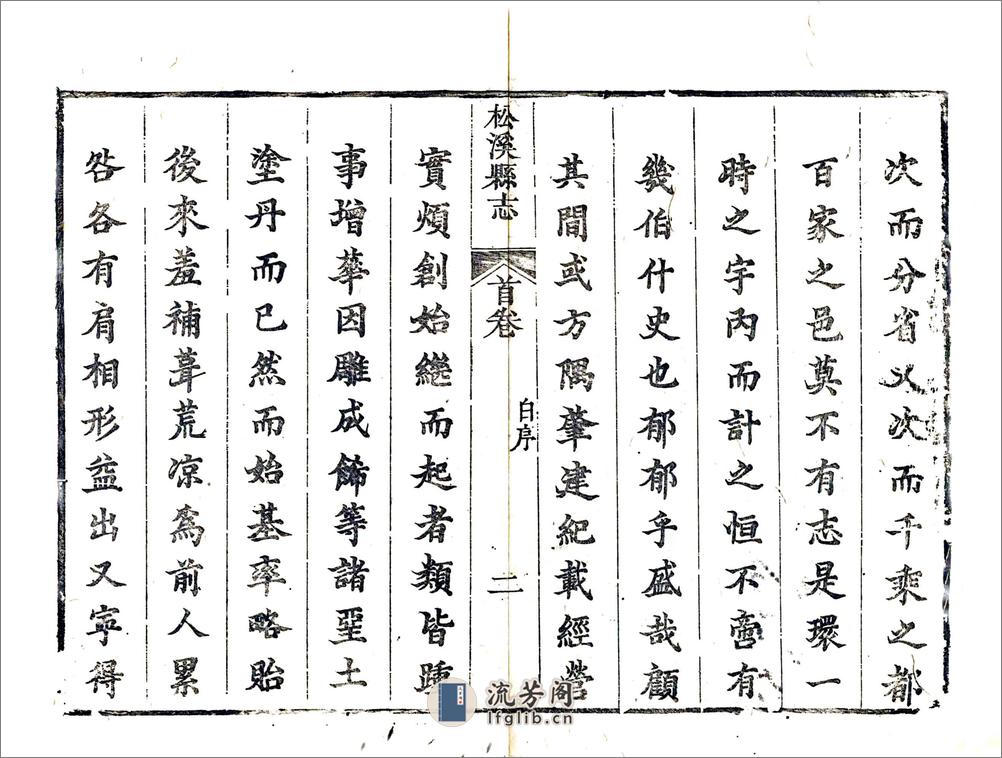 次而分省又次而千乘之都
百家之邑莫不有志是環一
時之宇內而計之恒不啻有
幾伯什史也郁郁乎盛哉顧
其間或方隅肇建紀載經營
松溪縣志
首卷
自序
二
實煩創始繼而起者類皆踵
事增華因雕成飾等諸堊土
塗丹而已然而始基率略貽
後來羞補葺荒凉爲前人累
咎各有肩相形益出又寜得
流芳阁
lfglib.cn